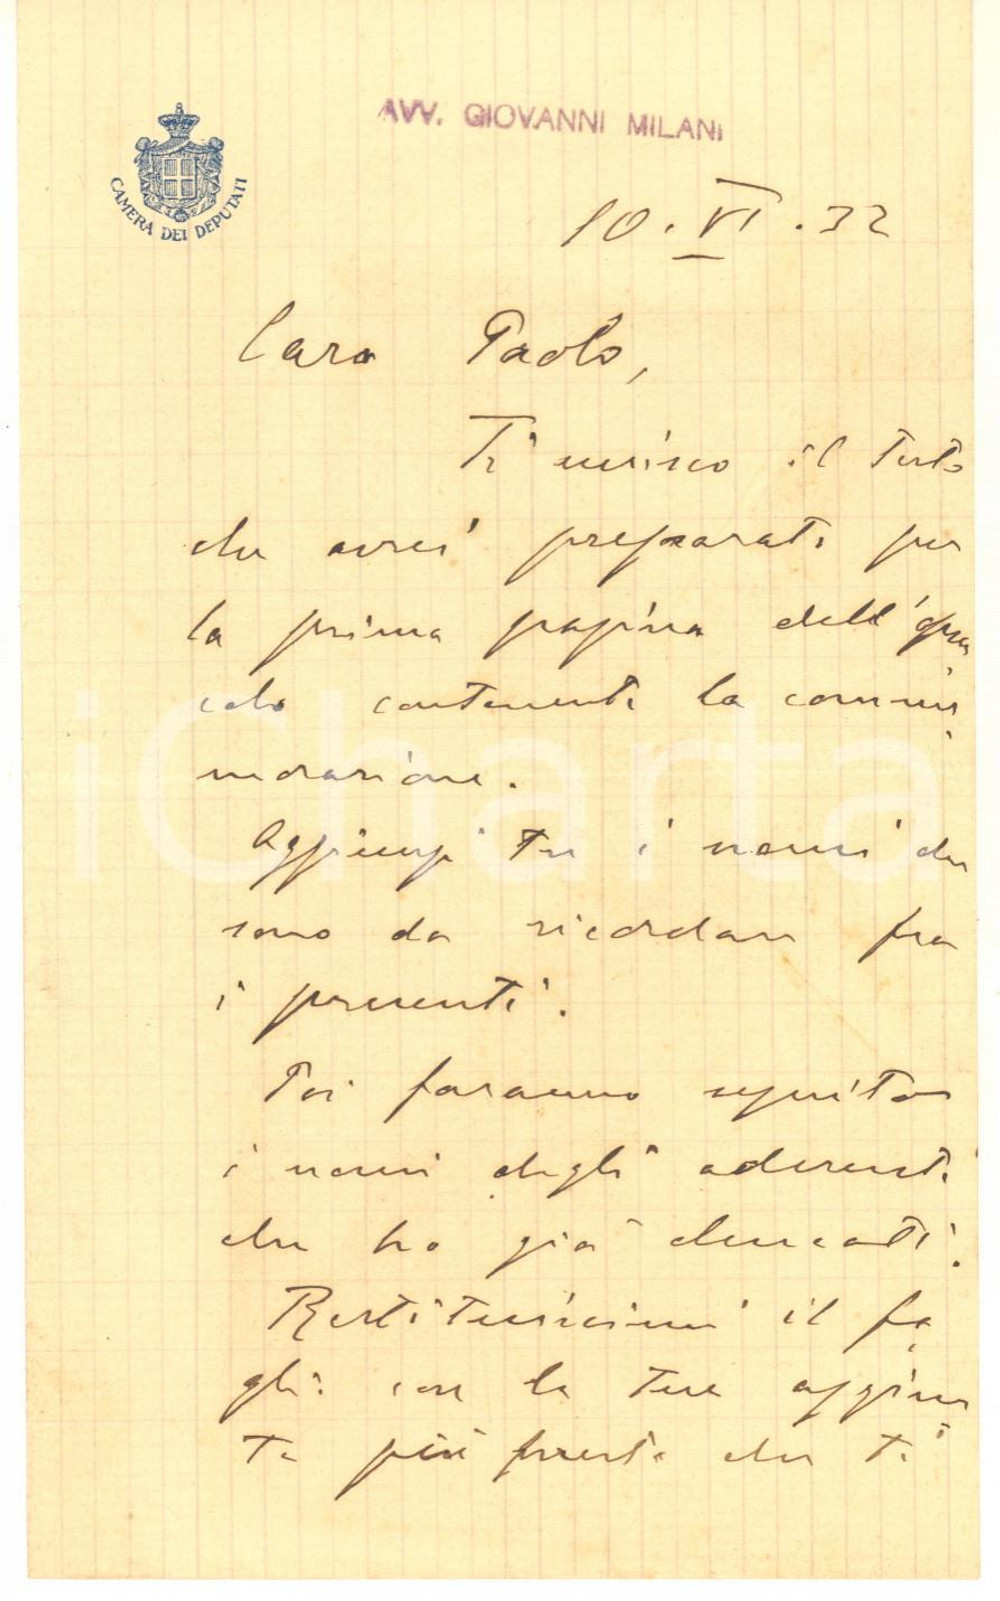 AVV. GIOVANNI MILANI
CAMERA DEI DEPUTATI
10.VI.32
Caro Paolo,
Ti unisco il testo
che avrei preparato per
la prima pagina dell'opu
scolo contenente la comme
morazione.
Aggiungi tu i nomi che
sono da ricordare fra
i presenti.
Poi faranno seguito
i nomi degli aderenti
che ho già elencati.
Restituiscimi il fo
glio con le tue aggiun
te più presto che ti
iCharta